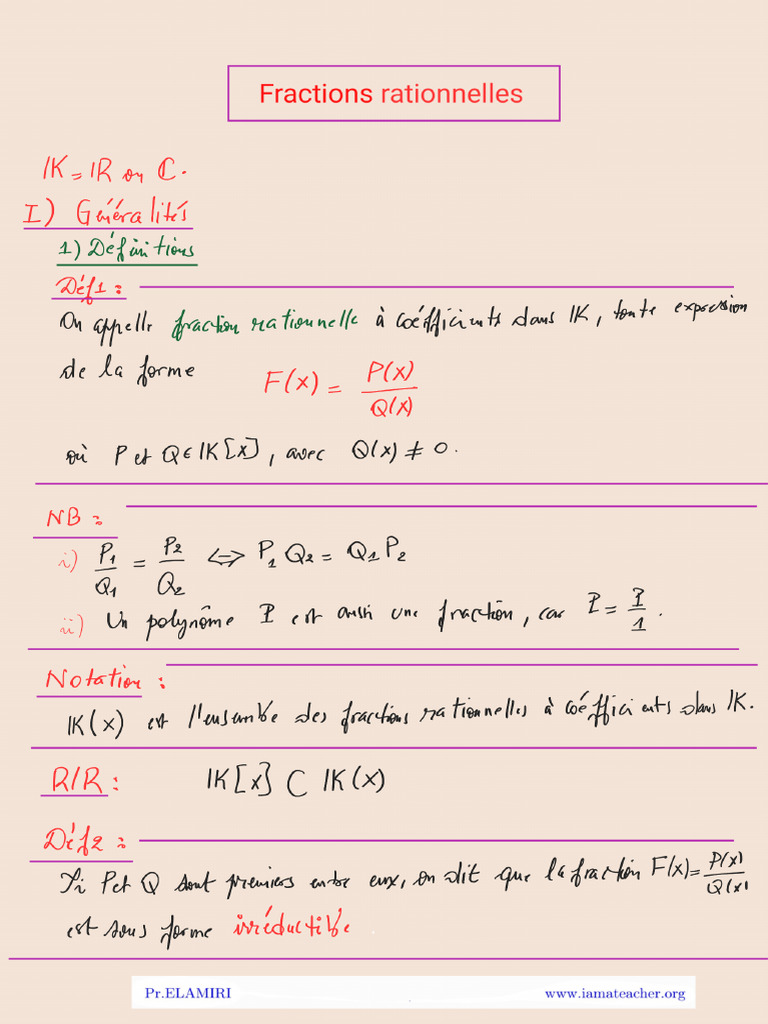 Fractions rationnelles
IK = IR ou ℂ.
I) Généralités
1) Définitions
Déf1 :
On appelle fraction rationnelle à coéfficients dans IK, toute expression
de la forme F(x) = P(x)/Q(x)
où P et Q ∈ IK[x], avec Q(x) ≠ 0.
NB :
i) P₁/Q₁ = P₂/Q₂ <=> P₁Q₂ = Q₁P₂
ii) Un polynôme P est aussi une fraction, car P = P/1.
Notation :
IK(x) est l'ensemble des fractions rationnelles à coéfficients dans IK.
R/R : IK[x] ⊂ IK(x)
Déf2 :
Si P et Q sont premiers entre eux, on dit que la fraction F(x) = P(x)/Q(x)
est sous forme irréductible
Pr.ELAMIRI www.iamateacher.org